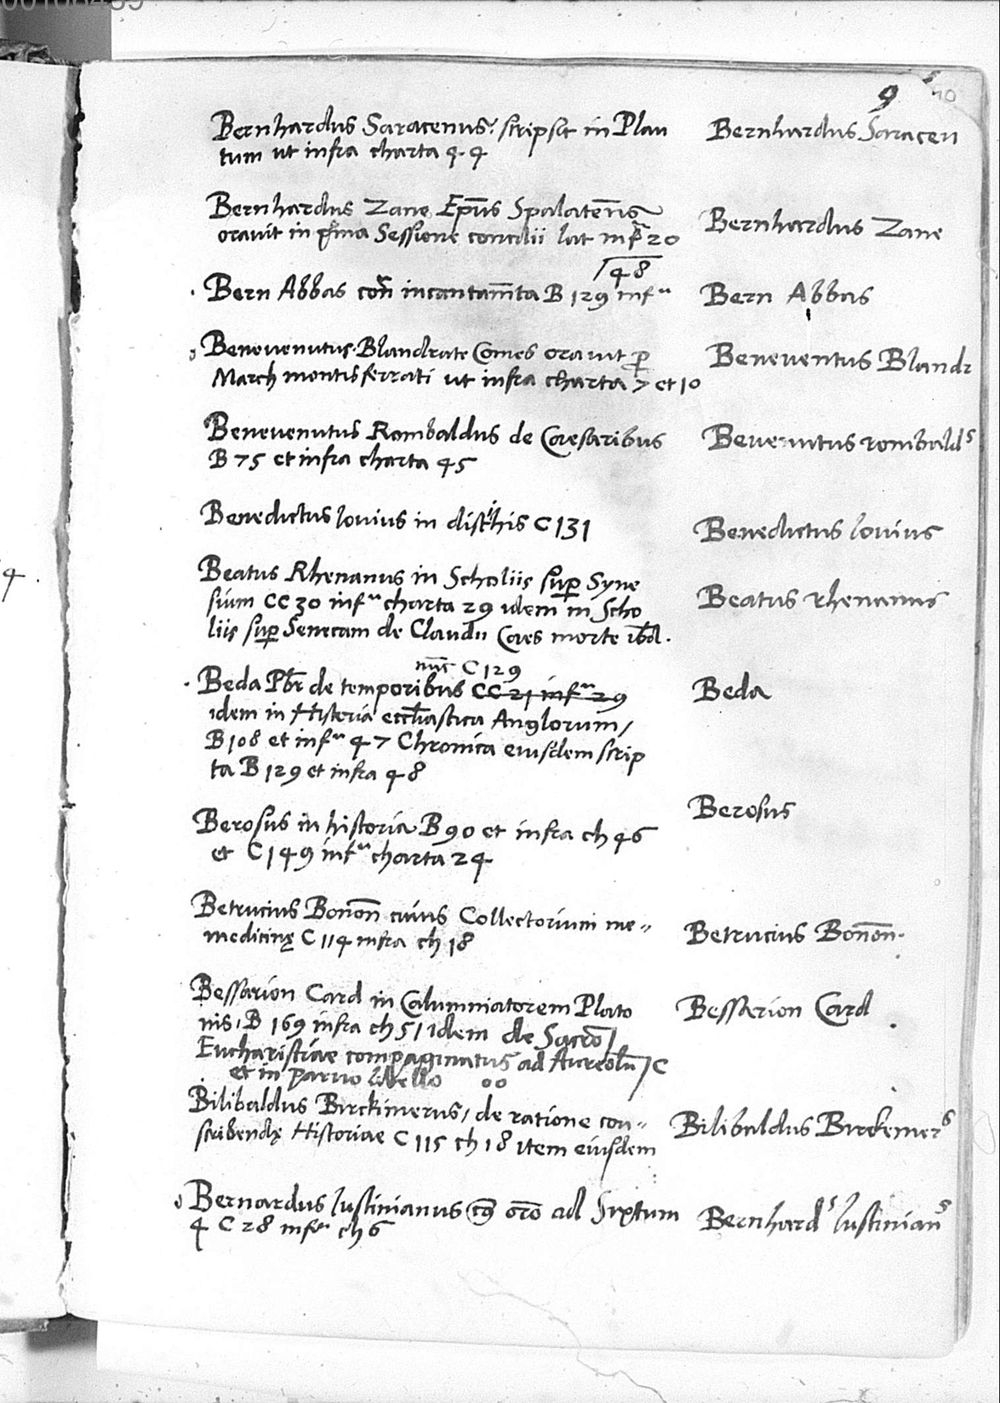 9 10
Bernhardus Saracenus: scripsit in Plau
tum ut infra charta 4. 4
Bernhardus Saracen
Bernhardus Zane Ep̅us Spalaten̅s
orauit in p̃ima Sessione concilii lat inf 20
Bernhardus Zane
48
Bern Abbas con̅ incantam̅ta B 129 infᵃ
Bern Abbas
Beneuenutus Blandrate Comes orauit p
March montisferrati ut infra charta 7 et 10
Beneuentus Blandr
Beneuenutus Rambaldus de Caesaribus
B 75 et infra charta 45
Beuenutus rombaldˢ
Benedictus Iouius in distichis C 131
Benedictus Iouius
Beatus Rhenanus in Scholiis sup Syne
sium CC 30 infᵃ charta 29 idem in Scho
liis sup Senecam de Claudii Caes morte ibid.
Beatus rhenanus
nu̅c C 129
Beda Pbr̅ de temporibus CC 21 infᵃ 29
idem in Historia eccl̅iastica Anglorum/
B 108 et infᵃ 47 Chronica eiusdem scrip
ta B 129 et infra 48
Beda
Berosus in historia B 90 et infra ch 46
et C 149 infᵃ charta 24
Berosus
Betrucius Bonon̅ cuius Collectorium me=
medicinę C 114 infra ch 18
Betrucius Bonon̅.
Bessarion Card in Calumniatorem Plato
nis, B 169 infra ch 51 idem de Sacro/
Eucharistiae compaginatus ad Aureolu̅/C
et in paruo libello oo
Bessarion Card
Bilibaldus Birckimerus, de ratione con=
scribendę Historiae C 115 ch 18 item eiusdem
Bilibaldus Birckemerˢ
Bernardus Iustinianus or̅o ad Sixtum
4 C 28 infᵃ ch 6
Bernhardˢ Iustinianˢ
4.